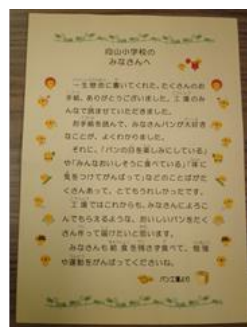 向山小学校の
みなさんへ
一生懸命に書いてくれた、たくさんのお
手紙、ありがとうございました。工場のみ
んなで読ませていただきました。
お手紙を読んで、みなさんパンが大好き
なことが、よくわかりました。
それに、「パンの日を楽しみにしている」
や「みんなおいしそうに食べている」「体に
気をつけてがんばって」などのことばがた
くさんあって、とてもうれしかったです。
工場ではこれからも、みなさんによろこ
んでもらえるような、おいしいパンをたく
さん作って届けたいと思います。
みなさんも給食を残さず食べて、勉強
や運動をがんばってくださいね。
パン工場より